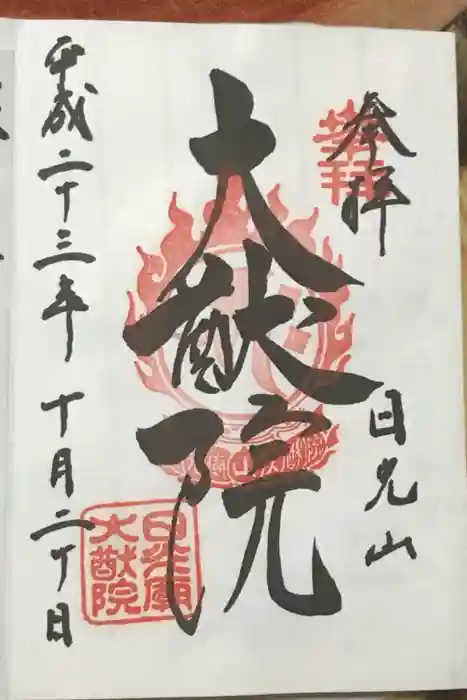 奉拝
日光山
大猷院
平成二十三年 十月二十日
日光廟
大猷院